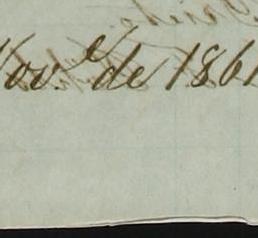 Nov.e de 1861